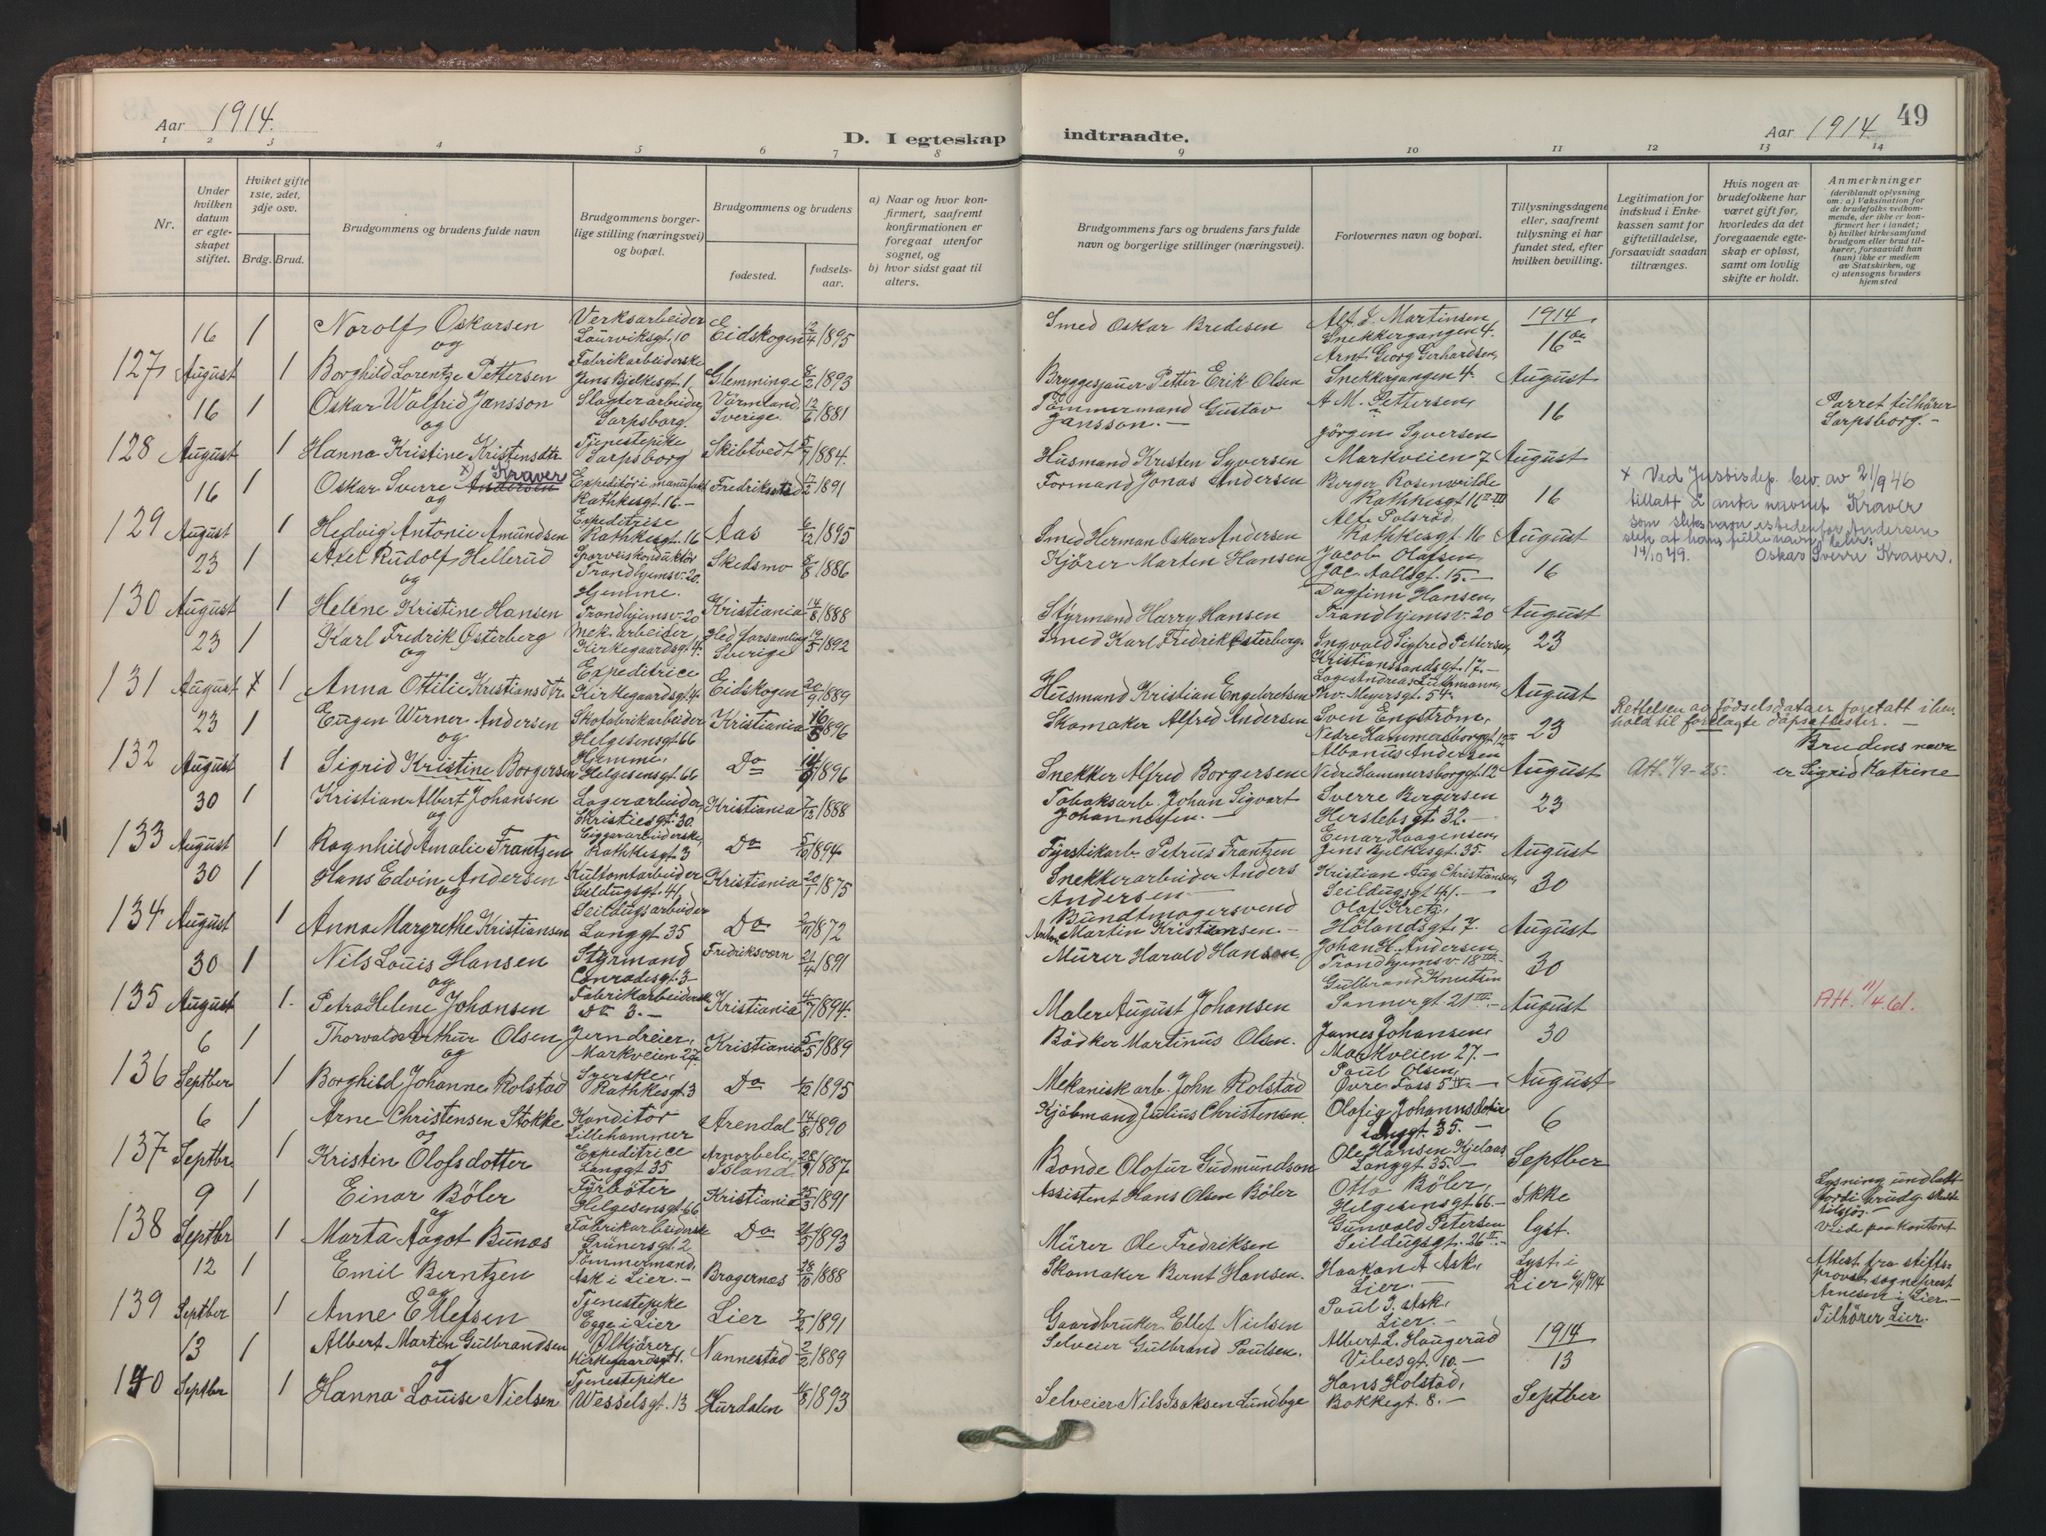 49
Aar 1914.
D. I egteskap indtraadte.
Aar 1914
1 2 3 4 5 6 7 8 9 10 11 12 13 14
Nr.
Under hvilken datum er egteskapet stiftet.
Hviket gifte 1ste, 2det, 3dje osv.
Brdg. Brud.
Brudgommens og brudens fulde navn
Brudgommens borgerlige stilling (næringsvei) og bopæl.
Brudgommens og brudens
fødested.
fødselsaar.
a) Naar og hvor konfirmert, saafremt konfirmationen er foregaat utenfor sognet, og
b) hvor sidst gaat til alters.
Brudgommens fars og brudens fars fulde navn og borgerlige stillinger (næringsvei).
Forlovernes navn og bopæl.
Tillysningsdagene eller, saafremt tillysning ei har fundet sted, efter hvilken bevilling.
Legitimation for indskud i Enkekassen samt for giftetilladelse, forsaavidt saadan tiltrænges.
Hvis nogen av brudefolkene har været gift før, hvorledes da det foregaaende egteskap er opløst, samt om lovlig skifte er holdt.
Anmerkninger (deriblandt oplysning om: a) Vaksination for de brudefolks vedkommende, der ikke er konfirmert her i landet; b) hvilket kirkesamfund brudgom eller brud tilhører, forsaavidt han (hun) ikke er medlem av Statskirken, og c) utensogns bruders hjemsted
127 16 August 1 1
Norolf Oskarsen
og
Borghild Lorentze Pettersen
Verksarbeider
Laurviksgt. 10
Fabrikarbeiderske
Jens Bjelkesgt. 1
Eidskogen 1895
Glemminge 8/2 1893
Smed Oskar Bredesen
Bryggesjauer Petter Erik Olsen
Alf. L. Martinsen
Snekkergangen 4.
Arnt Georg Gerhardsen
Snekkergangen 4.
1914
16de
August
128 16 August 1 1
Oskar Walfrid Jansson
og
Hanna Kristine Kristensdtr
Slagterarbeider
Sarpsborg.
Tjenestepike
Sarpsborg
Värmland
Sverige 12/6 1881
Skibtvedt 1884.
Tømmermand Gustav
Jansson.
Husmand Kristen Syversen
A M. Pettersen,
Jörgen Syversen
Markveien 7
16
August
Parret tilhører
Sarpsborg.
129 16 August 1 1
Oskar Sverre Andersen x) Kraver
og
Hedvig Antonie Amundsen
Expeditör i manufakt
Rathkesgt. 16
Expeditrise
Rathkesgt. 16
Fredrikstad 1891
Aas 6/12 1895
Formand Jonas Andersen
Smed Herman Oskar Andersen
Berger Rosenvilde
Rathkesgt 16 II-III
Alf Polsröd
Rathkesgt. 16
16
August
x Ved Justisdep. bev. av 21/9 46
tillatt å anta navnet Kraver
som sleksnavn istedenfor Andersen
slik at hans fulle navn blir:
14/10 49. Oskar Sverre Kraver.
130 23 August 1 1
Axel Rudolf Hellerud
og
Helene Kristine Hansen
Sporveiskonduktör
Trondhjemsv. 20
Hjemme.
Trondhjemsv. 20
Skedsmo 8/8 1886
Kristiania 14/8 1888
Kjörer Marten Hansen
Styrmand Harry Hansen
Jacob Olafsen
Jac. Aallsgt. 15.
Dagfinn Hansen,
Trondhjemsv. 20
16
August
131 23 August 1 x 1
Karl Fredrik Østerberg
og
Anna Ottilie Kristiansdtr.
Mek. arbeider
Kirkegaardsgt. 4.
Expeditrice
Kirkegaardsgt. 4
Hed forsamling
Sverige 1892
Eidskogen 20/9 1889
Smed Karl Fredrik Østerberg.
Husmand Kristian Engebretsen
Ingvald Sigfred Pettersen,
Kristianssandsgt. 17.
Thv. Meyersgt. 54.
23
August
132 23 August 1 1
Eugen Werner Andersen
og
Sigrid Kristine Borgersen
Skofabrikarbeider
Helgesensgt. 66
Hjemme,
Helgesensgt. 66
Kristiania 16/5 1896
Do 1896
Skomaker Alfred Andersen
Snekker Alfred Borgersen
Sven Engström,
Nedre Hammersborggt. 12
Albanus Andersen
Nedre Hammersborggt. 12
23
August
Rettelsen av fødselsdataer foretatt i henhold til forelagte dåpsattester.
Att. 1/9-25.
Brudens navn
er Sigrid Katrine
133 30 August 1 1
Kristian Albert Johansen
og
Ragnhild Amalie Frantzen
Lagerarbeider,
Christiesgt. 30.
Ciggararbeiderske,
Rathkesgt. 3
Kristiania 1888
Do 1894
Tobaksarb. Johan Sigvart
Johannessen.
Fyrstikarb. Petrus Frantzen
Sverre Bergersen
Herslebsgt. 32.
Einar Haagensen,
Jens Bjelkesgt. 35.
23
August
134 30 August 1 1
Hans Edvin Andersen
og
Anna Margrethe Kristiansen
Kultomtarbeider
Seildugsgt. 41,
Seildugsarbeider
Langgt. 35
Kristiania 20/1 1875
Do 1872
Snekkerarbeider Anders
Andersen
Bundtmagersvend
Martin Kristiansen.
Kristian Aug Christiansen,
Seildugsgt. 41.
Olaf Kretz,
Hölandsgt. 7.
30
August
135 30 August 1 1.
Nils Louis Hansen
og
Petra Helene Johansen
Styrmand
Conradesgt. 3
Fabrikarbeiderske
Do 3.
Fredriksværn 21/4 1891
Kristiania 4/7 1894.
Mürer Harald Hansen
Maler August Johansen
Johan H. Andersen,
Trondhjemsv. 18 III
Gulbrand Knutsen
Sannergt. 21 III.
30
August
Att. 11/4 61.
136 6 Septber 1 1
Thorvald Arthur Olsen
og
Borghild Johanne Rolstad
Jerndreier,
Markveien 27.
Syerske,
Rathkesgt. 3
Kristiania 5/5 1889
Do 1895
Bödker Martinus Olsen.
Mekanisk arb. John Rolstad
James Johansen,
Markveien 27.
Paul Olsen,
Övre Foss 5
30
August
137 6 Septbr. 1 1
Arne Christensen Stokke
og
Kristin Olofsdotter
Konditor
Lillehammer
Expeditrice
Langgt 35
Arendal 14/8 1890
Arnarbeli,
Island. 1887
Kjöbmand Julius Christensen.
Bonde Olofur Gudmundson
Olafia Johannsdotir
Langgt. 35.
Ole Hansen Kjelaas,
Langgt. 35.
6
Septber
138 9 Septbr 1 1
Einar Böler
og
Marta Aagot Bunæs
Fyrböter
Helgesensgt. 66
Fabrikarbeiderske
Grünersgt. 2
Kristiania 25/3 1891
Do 1893
Assistent Hans Olsen Böler
Mürer Ole Fredriksen
Otto Böler,
Helgesensgt. 66.
Gunvald Petersen
Seildugsgt. 26 II.
Ikke
lyst.
Lysning undlatt
fordi brudg. skulde
tilsjøs.
Viede paa kontoret
139 12 Septber 1 1
Emil Berntzen
og
Anne Ellefsen
Tömmermand,
Ask i Lier.
Tjenestepike
Egge i Lier
Bragernæs 1888
Lier 7/2 1891
Skomaker Bernt Hansen.
Gaardbruker Ellef Nielsen
Haakon A Ask,
Lier.
Paul J. Ask,
Lier.
Lyst i
Lier 6/9 1914
Attest fra stiftsprovst sogneprest
Arnesen i Lier
Tilhører Lier.
140 13 Septbr 1 1
Albert Martin Gulbrandsen
og
Hanna Louise Nielsen
Ölkjörer
Kirkegaardsgt. 1.
Tjenestepike
Wesselsgt. 13
Nannestad 2/2 1889
Hurdalen 1893
Selveier Gulbrand Paulsen.
Selveier Nils Isaksen Lundbye
Albert L. Haugerud
Vibesgt. 10.
Hans Holstad,
Bakkegt. 8.
1914
13
Septber